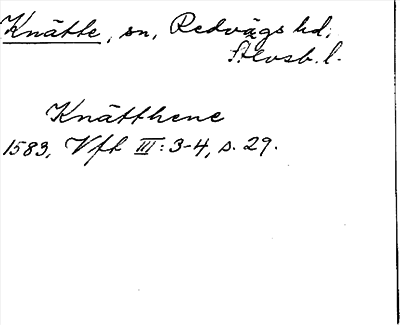 Knätte, sn, Redvägs hd,
Älvsb. l.
Knätthene
1583, Vft III: 3-4, s. 29.